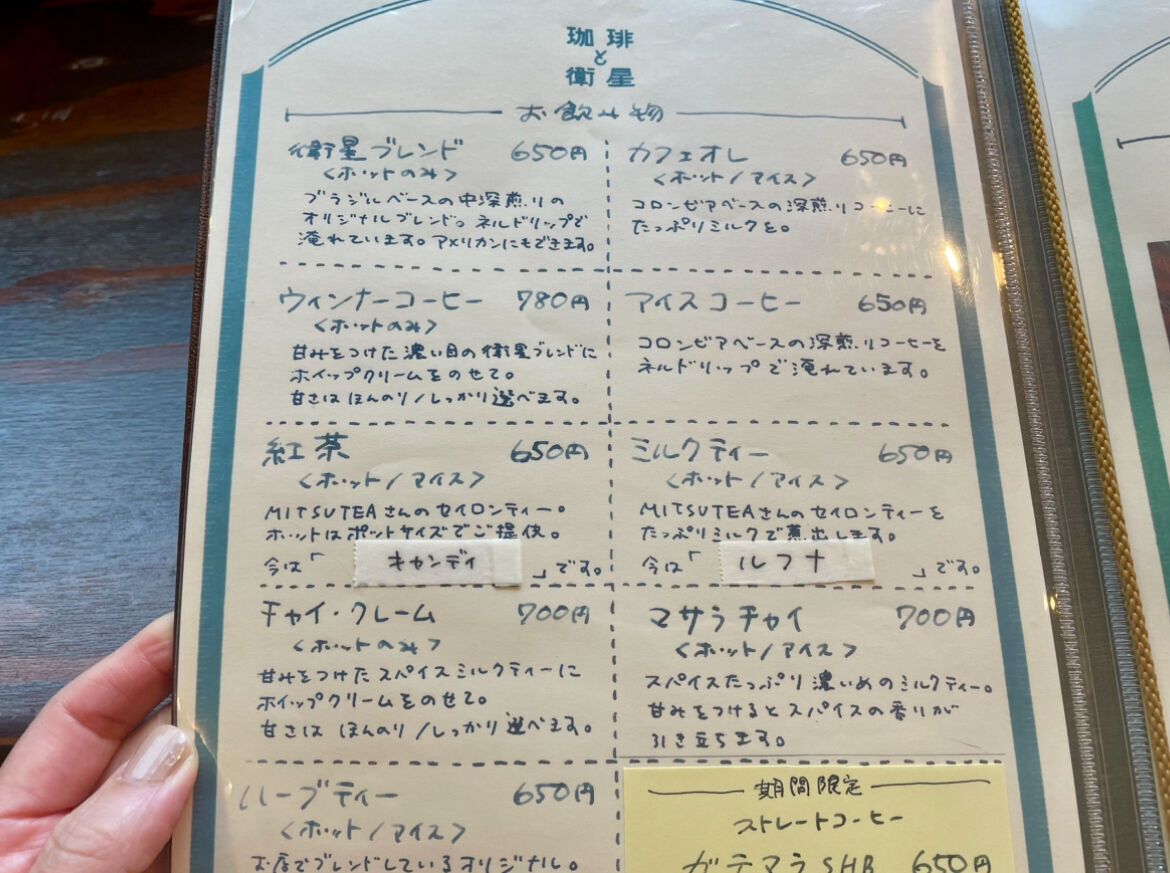 珈琲
と
衛星
お飲み物
衛星ブレンド 650円
<ホットのみ>
ブラジルベースの中深煎りの
オリジナルブレンド。ネルドリップで
淹れています。アメリカンにもできます。
カフェオレ 650円
<ホット/アイス>
コロンビアベースの深煎りコーヒーに
たっぷりミルクを。
ウィンナーコーヒー 780円
<ホットのみ>
甘みをつけた濃い目の衛星ブレンドに
ホイップクリームをのせて。
甘さは ほんのり/しっかり選べます。
アイスコーヒー 650円
コロンビアベースの深煎りコーヒーを
ネルドリップで淹れています。
紅茶 650円
<ホット/アイス>
MITSUTEAさんのセイロンティー。
ホットはポットサイズでご提供。
今は「キャンディ」です。
ミルクティー 650円
<ホット/アイス>
MITSUTEAさんのセイロンティーを
たっぷりミルクで煮出します。
今は「ルフナ」です。
チャイ・クレーム 700円
<ホットのみ>
甘みをつけたスパイスミルクティーに
ホイップクリームをのせて。
甘さは ほんのり/しっかり選べます。
マサラチャイ 700円
<ホット/アイス>
スパイスたっぷり濃いめのミルクティー。
甘みをつけるとスパイスの香りが
引き立ちます。
ハーブティー 650円
<ホット/アイス>
お店でブレンドしているオリジナル。
期間限定
ストレートコーヒー
ガテマラSHB 650円